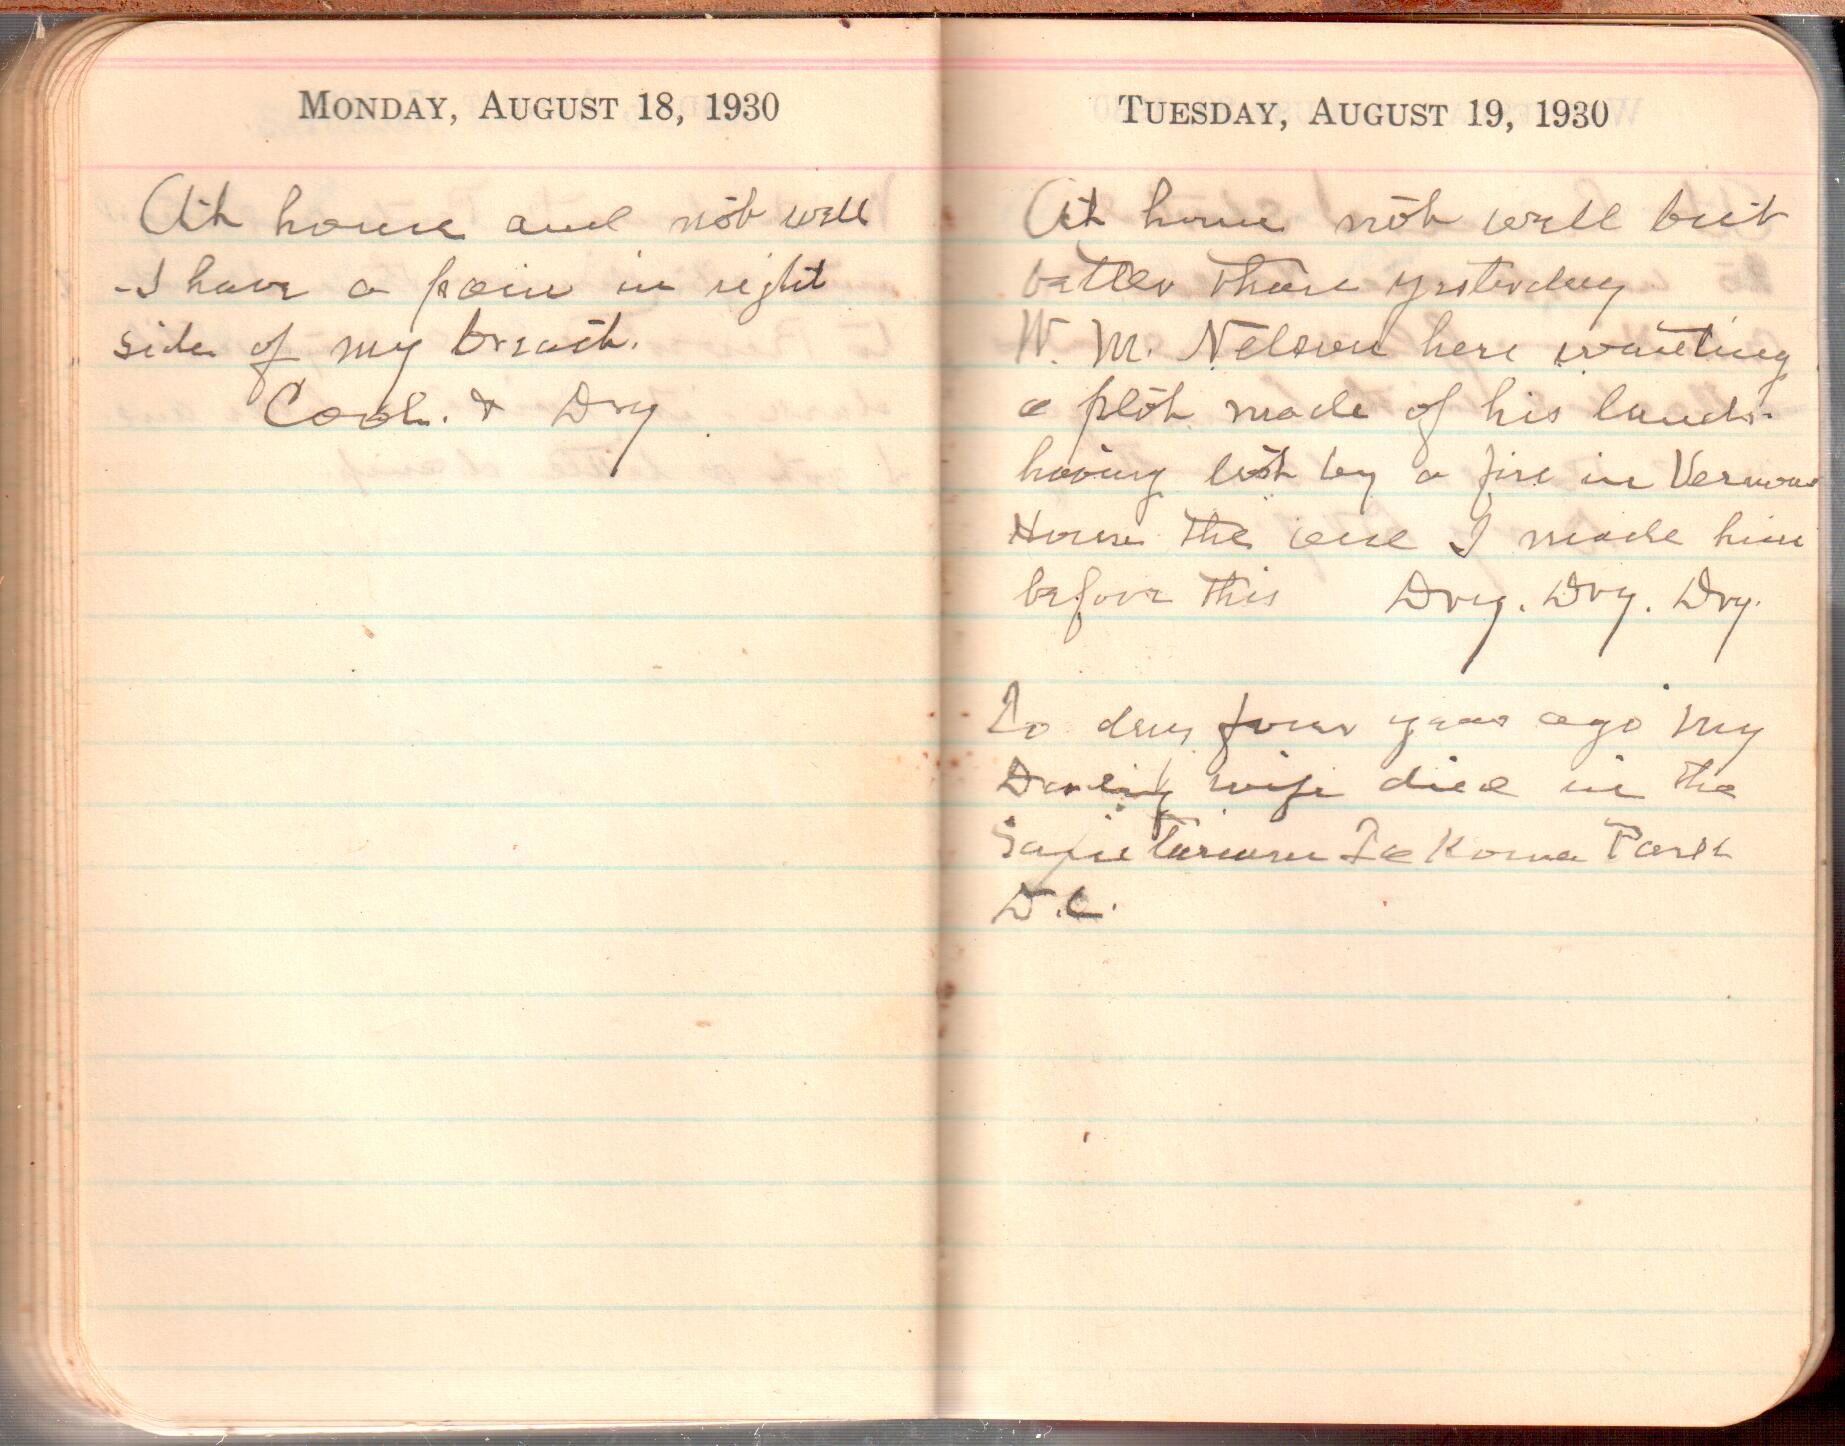 MONDAY, AUGUST 18, 1930
At home and not well
I have a pain in right
side of my breast.
Cool. & Dry
TUESDAY, AUGUST 19, 1930
At home not well but
better than yesterday
W. M. Nelson here wanting
a plot made of his lands.
having lost by a fire in Vernon
House the one I made him
before this Dry. Dry. Dry.
To day four years ago My
Darling wife died in the
Sanitarium Takoma Park
D.C.